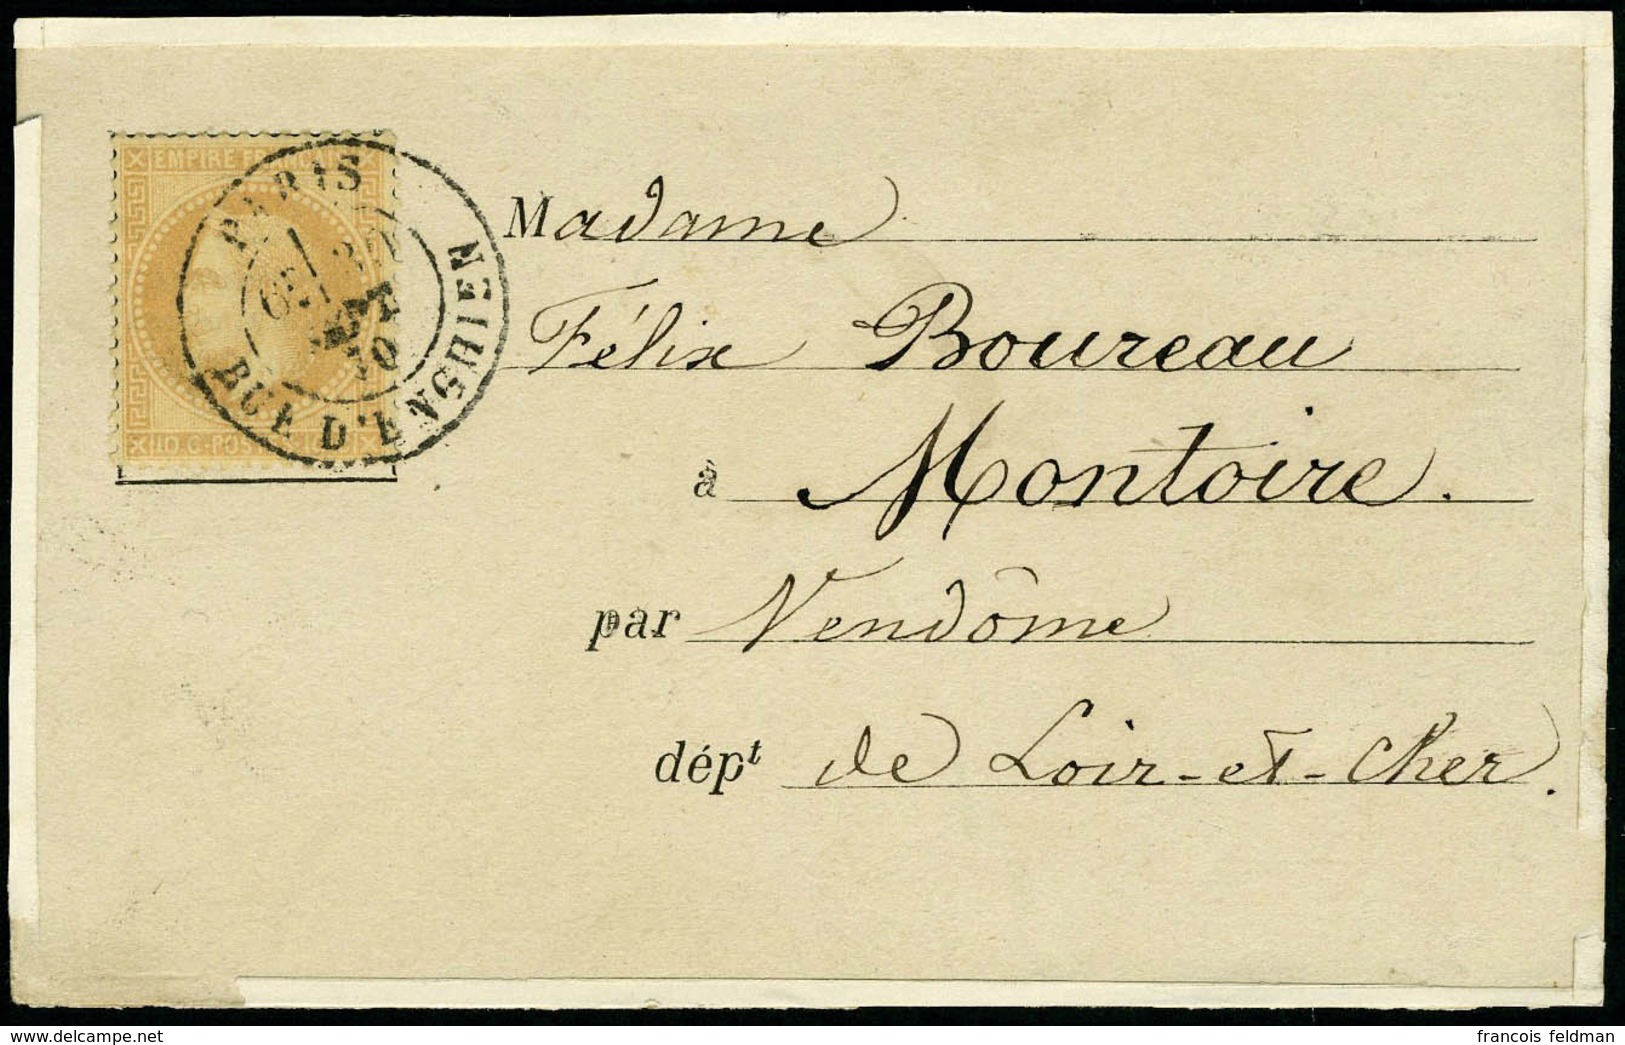 EMPIRE FRANÇAIS
PARIS
RUE D'ENGHIEN
70
Madame
Félix Boureau
à Montoire.
par Vendôme
dépt de Loir-et-Cher.
www.delcampe.net
francois feldman